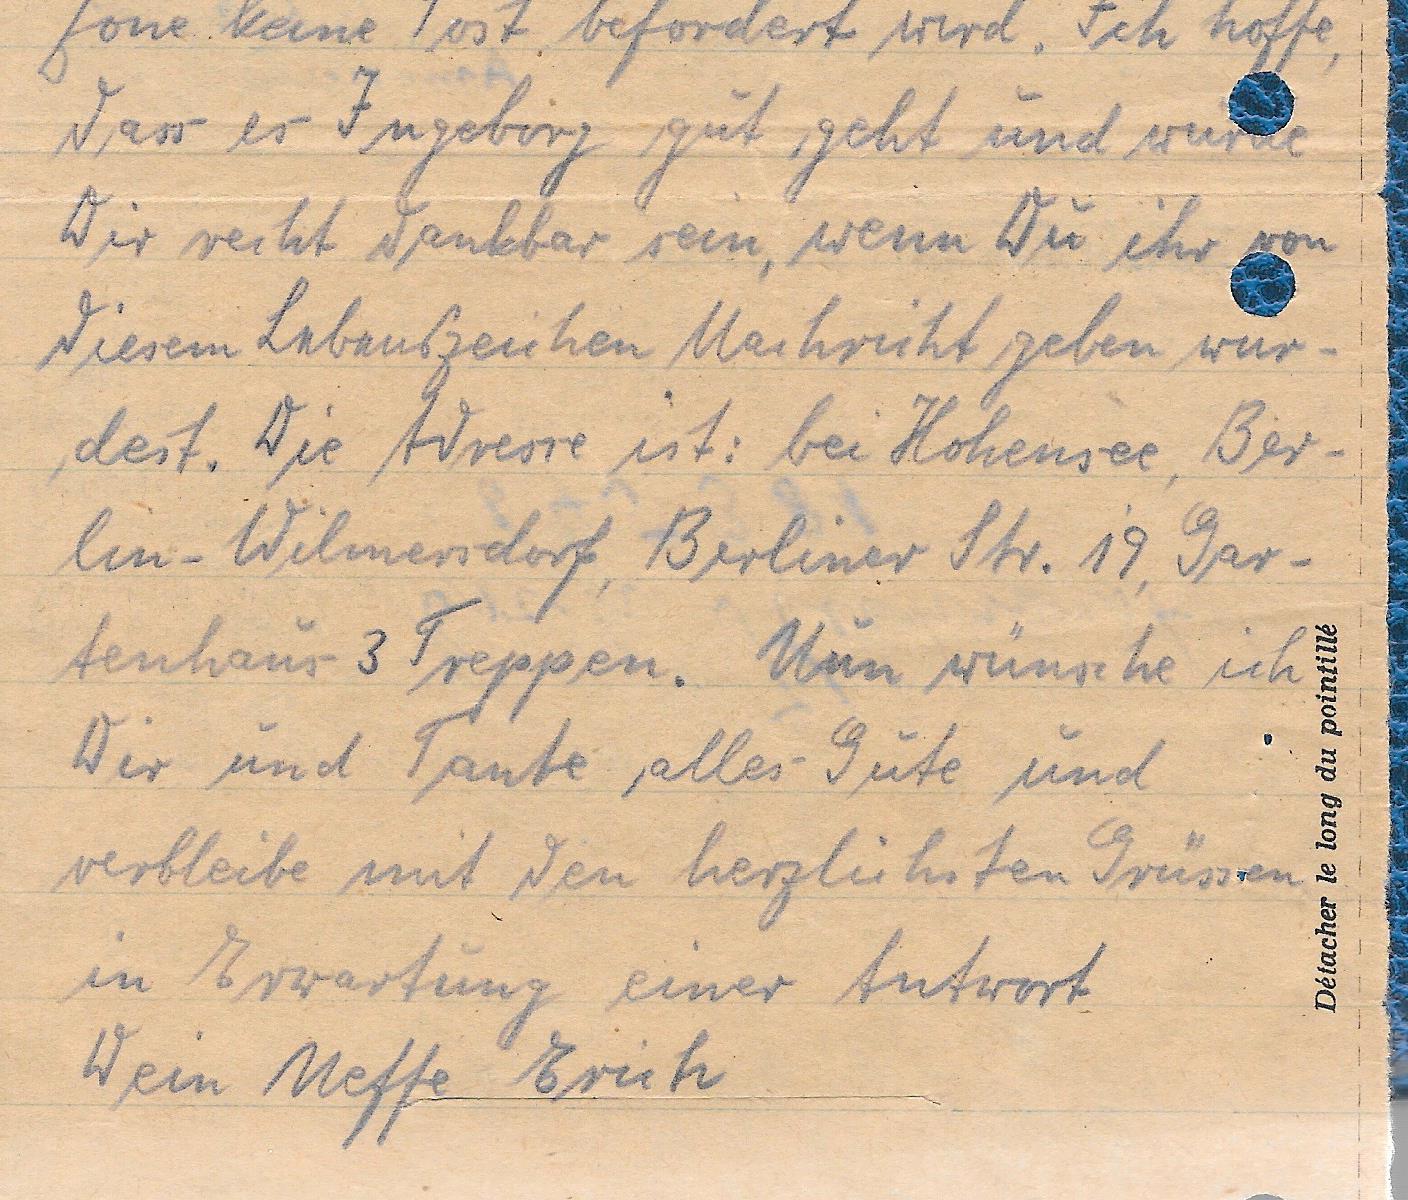 Zone keine Post befördert wird. Ich hoffe,
dass es Ingeborg gut geht und wurde
Dir recht dankbar sein, wenn Du ihr von
diesem Lebenszeichen Nachricht geben wur-
dest. Die Adresse ist: bei Hohensee, Ber-
lin-Wilmersdorf, Berliner Str. 19, Gar-
tenhaus 3 Treppen. Nun wünsche ich
Dir und Tante alles Gute und
verbleibe mit den herzlichsten Grüssen
in Erwartung einer Antwort
Dein Neffe Erich
Détacher le long du pointillé